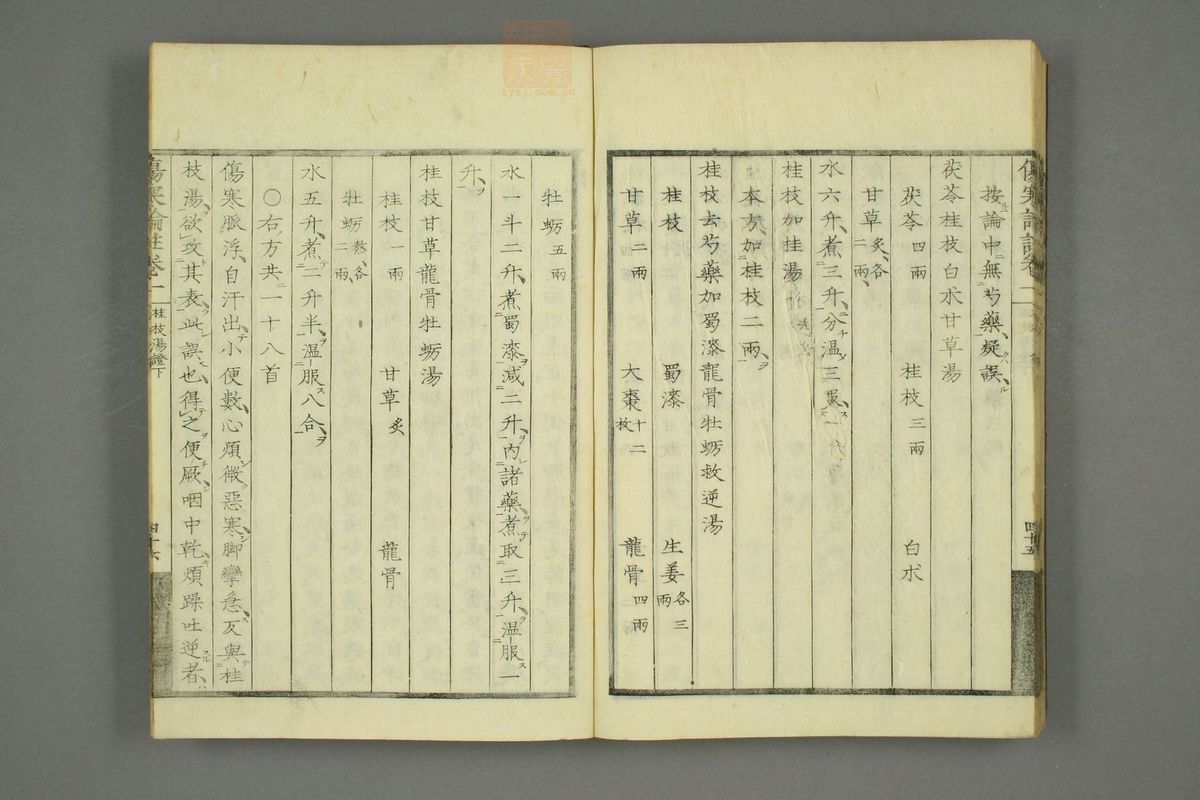 按論中無芍藥疑誤
茯苓桂枝白朮甘草湯
茯苓四兩 桂枝三兩 白朮
甘草炙各二兩
水六升煮三升分溫三服
桂枝加桂湯
本方加桂枝二兩
桂枝去芍藥加蜀漆龍骨牡蛎救逆湯
桂枝 蜀漆 生姜各三兩
甘草二兩 大棗十二枚 龍骨四兩
四十五
牡蛎五兩
水一斗二升煮蜀漆減二升內諸藥煮取三升溫服一
升
桂枝甘草龍骨牡蛎湯
桂枝一兩 甘草炙 龍骨
牡蛎熬各二兩
水五升煮二升半溫服八合
〇右方共一十八首
傷寒脈浮自汗出小便數心煩微惡寒脚攣急反與桂
枝湯欲攻其表此誤也得之便厥咽中乾煩躁吐逆者
傷寒論註卷一 桂枝湯證下 四十六
zysj.com.cn